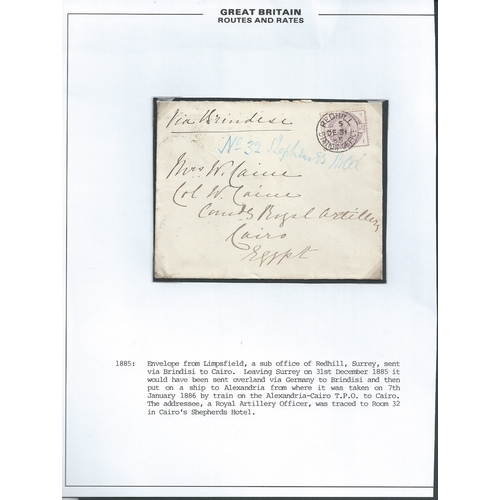 GREAT BRITAIN
ROUTES AND RATES
Via Brindisi
REDHILL
5
DE 31
85
No 32 Shepheards Hotel
Mrs W. Caine
Col W. Caine
Comdg Royal Artillery
Cairo
Egypt
1885: Envelope from Limpsfield, a sub office of Redhill, Surrey, sent
via Brindisi to Cairo. Leaving Surrey on 31st December 1885 it
would have been sent overland via Germany to Brindisi and then
put on a ship to Alexandria from where it was taken on 7th
January 1886 by train on the Alexandria-Cairo T.P.O. to Cairo.
The addressee, a Royal Artillery Officer, was traced to Room 32
in Cairo's Shepherds Hotel.